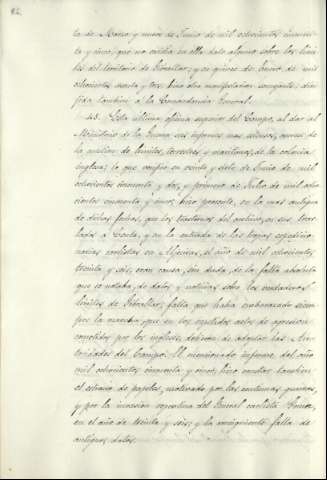 82.
to de Marzo y nueve de Junio de mil ochocientos cincuen-
ta y cinco, que no existia en ella dato alguno sobre los limi-
tes del territorio de Gibraltar; y en quince de Enero de mil
ochocientos sesenta y tres hizo otra manifestacion semejante, diri-
gida tambien á la Comandancia General.
43. Esta última oficina superior del Campo, al dar al
Ministerio de la Guerra sus informes mas extensos, acerca de
la cuestion de limites, terrestres y maritimos, de la colonia
inglesa; lo que verificó en veinte y siete de Junio de mil
ochocientos cincuenta y dos, y primero de Julio de mil ocho-
cientos cincuenta y cinco, hizo presente, en la mas antigua
de dichas fechas, que los trastornos del archivo, en sus tras-
lados á Ceuta, y en la entrada de las tropas expedicio-
narias carlistas en Algeciras, el año de mil ochocientos
treinta y seis, eran causa, sin duda, de la falta absoluta
que se notaba, de datos y noticias sobre los verdaderos
limites de Gibraltar; falta que habia embarazado siem-
pre la marcha, que en los repetidos actos de agresion
cometidos por los ingleses, debieron de adoptar las Au-
toridades del Campo. El mencionado informe del año
mil ochocientos cincuenta y cinco, hizo constar tambien
el extravio de papeles, motivado por las continuas guerras,
y por la invasion repentina del General carlista Gomez,
en el año de treinta y seis; y la consiguiente falta de
antiguos datos.